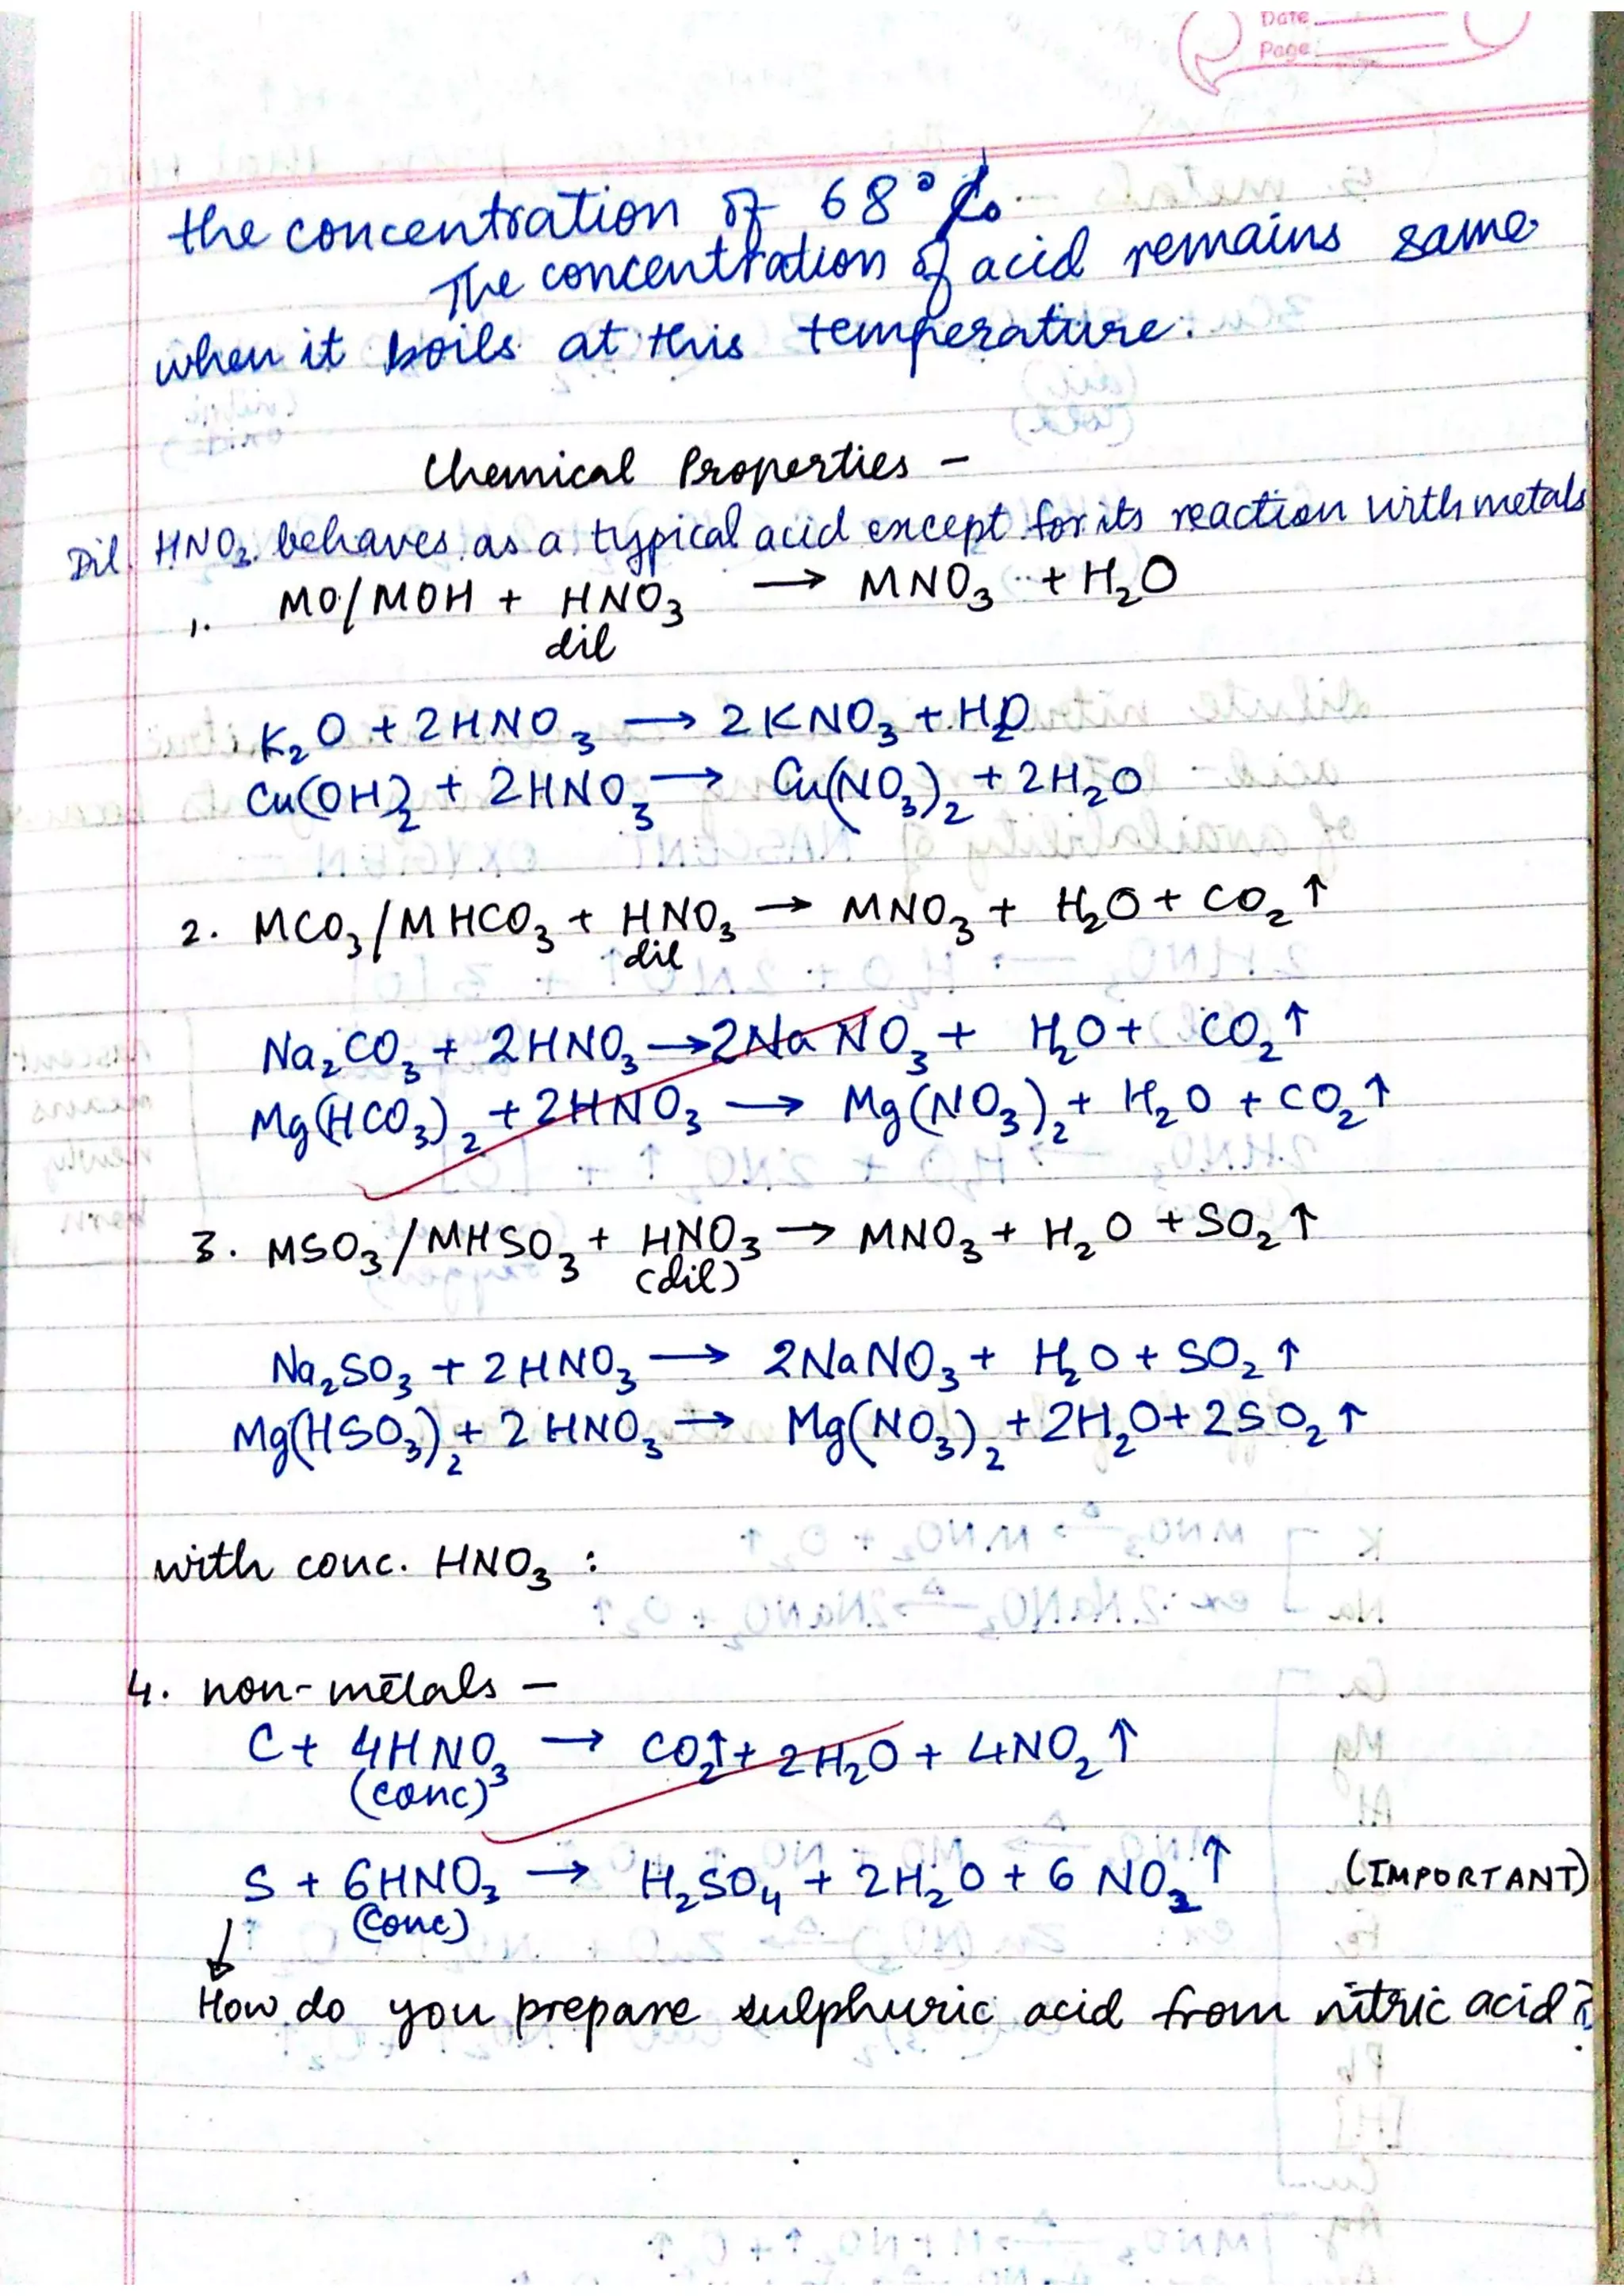 Date
Page
the concentration of 68%.
The concentration of acid remains same
when it boils at this temperature.
Chemical Properties -
Dil. HNO₃ behaves as a typical acid except for its reaction with metals
1. MO/MOH + HNO₃ → MNO₃ + H₂O
dil
K₂O + 2HNO₃ → 2KNO₃ + H₂O
Cu(OH)₂ + 2HNO₃ → Cu(NO₃)₂ + 2H₂O
2. MCO₃/MHCO₃ + HNO₃ → MNO₃ + H₂O + CO₂ ↑
dil
Na₂CO₃ + 2HNO₃ → 2NaNO₃ + H₂O + CO₂ ↑
Mg(HCO₃)₂ + 2HNO₃ → Mg(NO₃)₂ + H₂O + CO₂ ↑
3. MSO₃/MHSO₃ + HNO₃ → MNO₃ + H₂O + SO₂ ↑
(dil)
Na₂SO₃ + 2HNO₃ → 2NaNO₃ + H₂O + SO₂ ↑
Mg(HSO₃)₂ + 2HNO₃ → Mg(NO₃)₂ + 2H₂O + 2SO₂ ↑
with conc. HNO₃ :
4. non-metals -
C + 4HNO₃ → CO₂↑ + 2H₂O + 4NO₂ ↑
(conc)
S + 6HNO₃ → H₂SO₄ + 2H₂O + 6NO₂ ↑ (IMPORTANT)
(conc)
↓
How do you prepare sulphuric acid from nitric acid?